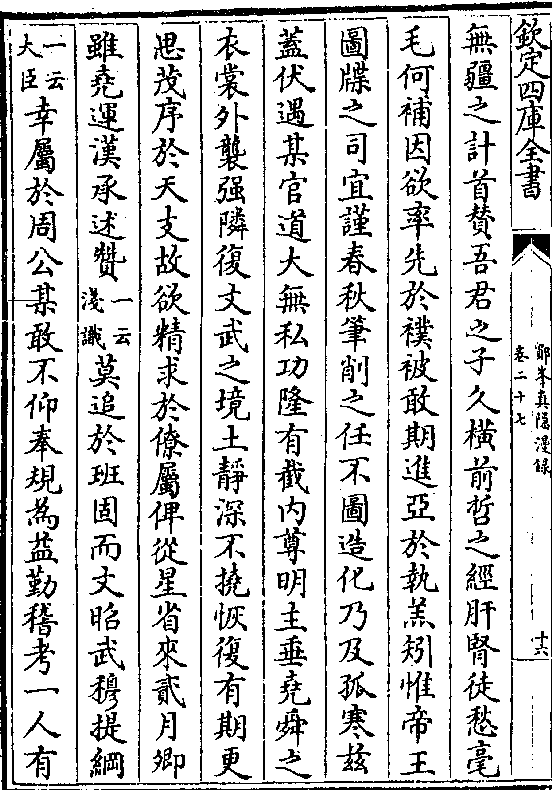 欽定四庫全書
鄮峯真隱漫録
卷二十七
十六
無疆之計首賛吾君之子久横前哲之經肝腎徒愁毫
毛何補因欲率先於襆被敢期進亞於執羔矧惟帝王
圖牒之司宜謹春秋筆削之任不圖造化乃及孤寒兹
蓋伏遇某官道大無私功隆有截内尊明主垂堯舜之
衣裳外襲强隣復文武之境土靜深不撓恢復有期更
思茂序於天支故欲精求於僚屬俾從星省來貳月卿
雖堯運漢承述贊一云淺識莫追於班固而文昭武穆提綱
一云大臣幸屬於周公某敢不仰奉規為益勤稽考一人有